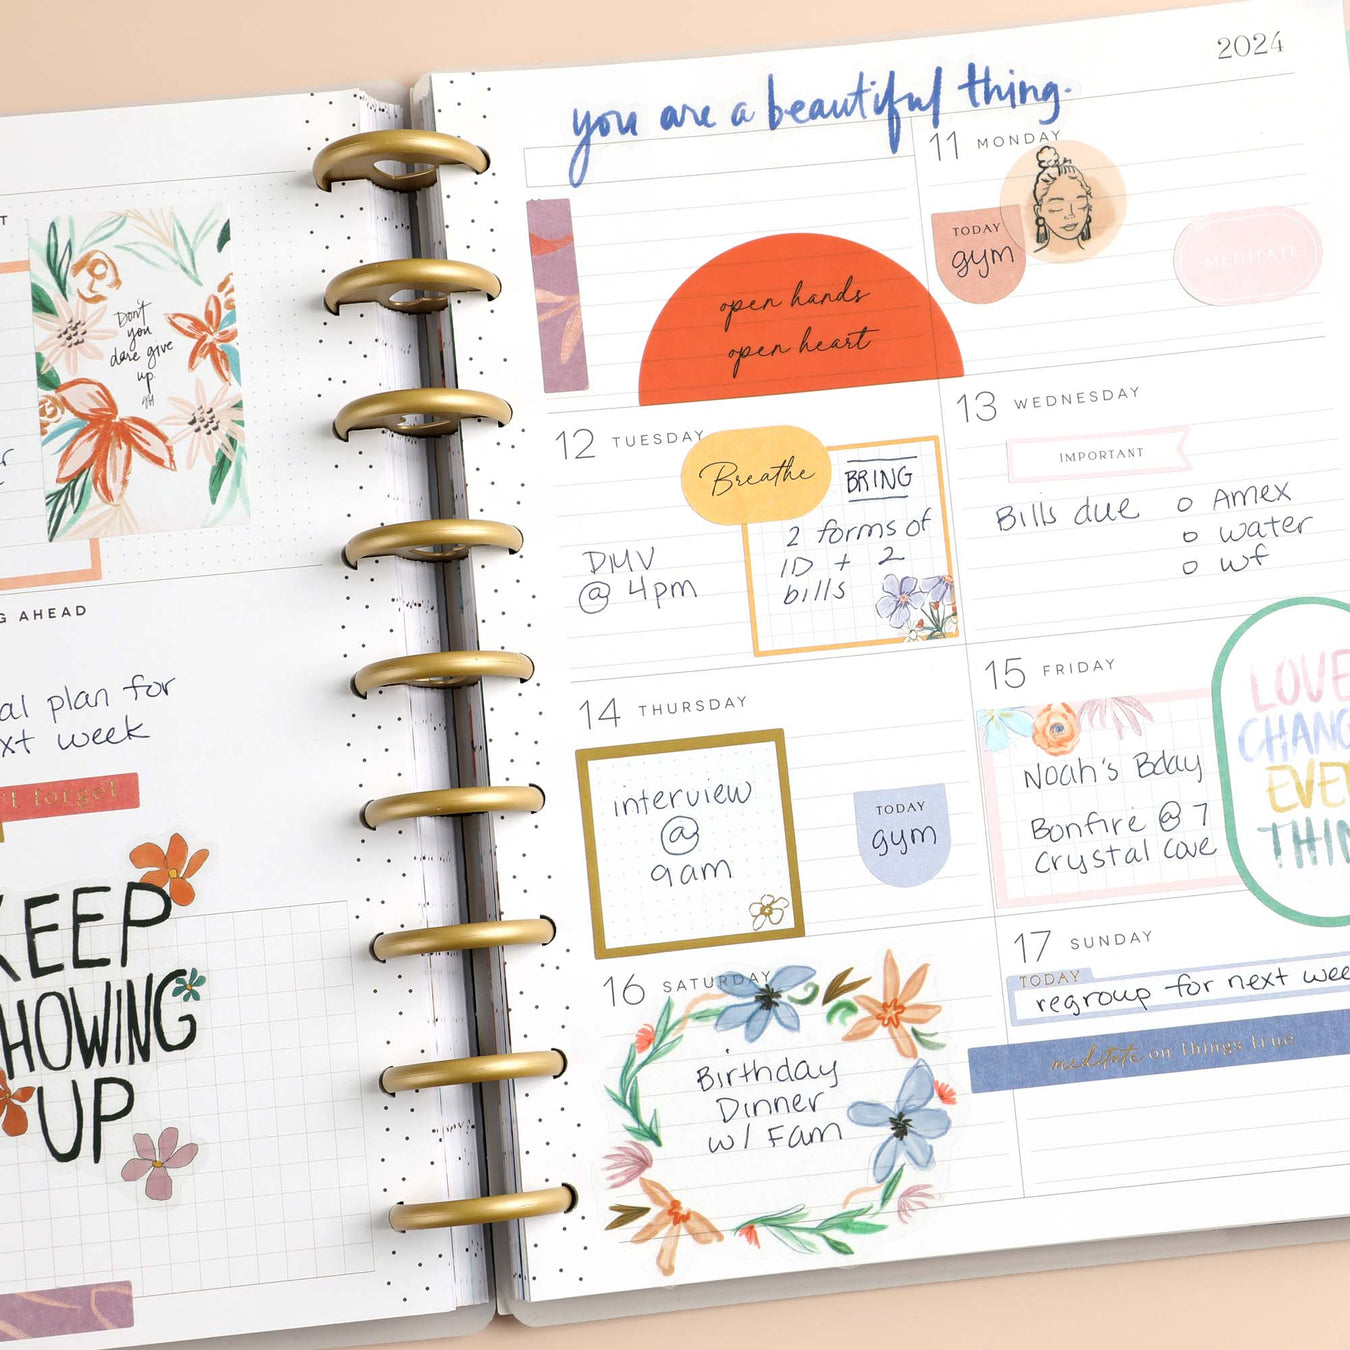 Don't
you
dare give
up.
AHEAD
plan for
week
forget
KEEP
UP
2024
you are a beautiful thing.
11 MONDAY
TODAY
gym
MEDITATE
open hands
open heart
12 TUESDAY
Breathe
BRING
2 forms of
ID + 2
bills
DMV
@ 4pm
13 WEDNESDAY
IMPORTANT
Bills due o Amex
o water
o wf
14 THURSDAY
interview
@
9am
TODAY
gym
15 FRIDAY
Noah's Bday
Bonfire @ 7
Crystal Cove
LOVE
16 SATURDAY
Birthday
Dinner
w/ Fam
17 SUNDAY
TODAY
regroup for next
meditate on things true